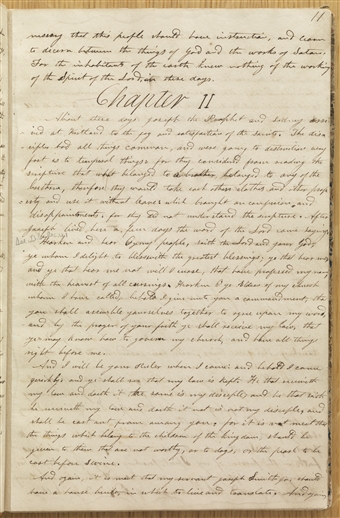 11
nessary that this people should have instruction, and learn
to discern between the things of God and the works of Satan:
For the inhabitants of the earth knew nothing of the working
of the Spirit of the Lord, in these days.
Chapter II
About these days Joseph the Prophet and Sidney arri-
ved at Kirtland to the joy and satisfaction of the saints. The disc-
iples had all things common, and were going to destruction very
fast as to temporal things; for they considered from reading the
scripture that what belonged to a brother belonged to any of the
brethren, therefore they would take each others clothes and other prop-
erty and use it without leave: which brought on confusion and
disappointments: for they did not understand the scripture. After
Joseph lived here a few days the word of the Lord came saying:
Hearken and hear O my people, saith the Lord and your God,
ye whom I delight to bless with the greatest blessings; ye that hear me,
and ye that hear me not will I curse, that have professed my name,
with the heaviest of all cursings. Hearken O ye Elders of my church
whom I have called, behold I give unto you a commandment, that
you shall assemble yourselves together to agree upon my word,
and by the prayer of your faith ye shall receive my law, that
ye may know how to govern my church, and have all things
right before me.
And I will be your Ruler when I come: and behold I come
quickly: and ye shall see that my law is kept. He that receiveth
my law and doeth it the same is my disciple; and he that saith
he receiveth my law and doeth it not is not my disciple, and
shall be cast out from among you: for it is not meet that
the things which belong to the children of the kingdom, should be
given to them that are not worthy, or to dogs, or the pearls to be
cast before swine.
And again, it is meet that my servant Joseph Smith jr. should
have a house built, in which to live and translate. And again